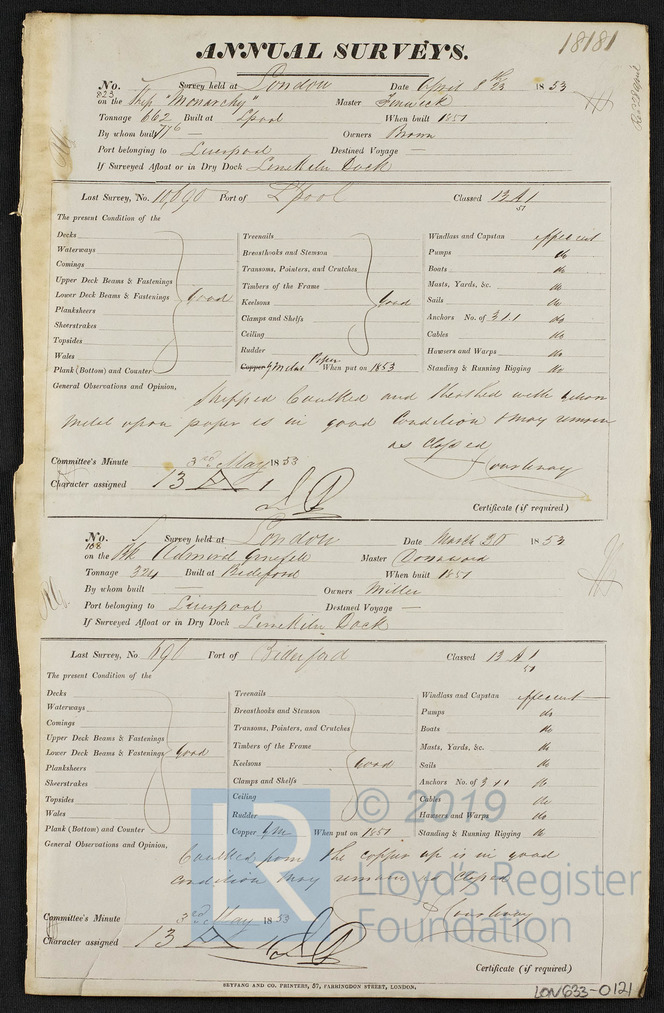 18181
ANNUAL SURVEYS.
No. 823 Survey held at London Date April 8th 23 1853
on the Ship "Monarchy" Master Fenwick
Tonnage 662 776 Built at Lpool When built 1851
By whom built — Owners Brown
Port belonging to Liverpool Destined Voyage —
If Surveyed Afloat or in Dry Dock Limekiln Dock
Last Survey, No. 10,690 Port of L'pool Classed 13 A 1
51
The present Condition of the
Decks
Waterways
Comings
Upper Deck Beams & Fastenings
Lower Deck Beams & Fastenings Good
Planksheers
Sheerstrakes
Topsides
Wales
Plank (Bottom) and Counter
Treenails
Breasthooks and Stemson
Transoms, Pointers, and Crutches
Timbers of the Frame
Keelsons Good
Clamps and Shelfs
Ceiling
Rudder
Copper Y Metal Paper When put on 1853
Windlass and Capstan efficient
Pumps do
Boats do
Masts, Yards, &c. do
Sails do
Anchors No. of 3 1 1 do
Cables do
Hawsers and Warps do
Standing & Running Rigging do
General Observations and Opinion,
Stripped Caulked and Sheathed with yellow
metal upon paper is in good Condition & may remain
as Classed
J Courtenay
Committee's Minute 3rd May 1853
Character assigned 13 A 1
Certificate (if required)
No. 108 Survey held at London Date March 20 1853
on the Bk Admiral Grenfell Master
Tonnage 324 Built at Bideford When built 1851
By whom built — Owners Miller
Port belonging to Liverpool Destined Voyage —
If Surveyed Afloat or in Dry Dock Limekiln Dock
Last Survey, No 696 Port of Bideford Classed 13 A 1
51
The present Condition of the
Decks
Waterways
Comings
Upper Deck Beams & Fastenings
Lower Deck Beams & Fastenings Good
Planksheers
Sheerstrakes
Topsides
Wales
Plank (Bottom) and Counter
Treenails
Breasthooks and Stemson
Transoms, Pointers, and Crutches
Timbers of the Frame
Keelsons Good
Clamps and Shelfs
Ceiling
Rudder
Copper Y M When put on 1851
Windlass and Capstan efficient
Pumps do
Boats do
Masts, Yards, &c. do
Sails do
Anchors No. of 3 1 1 do
Cables do
Hawsers and Warps do
Standing & Running Rigging do
General Observations and Opinion,
Caulked from the copper up is in good
condition may remain as Classed
J Courtenay
Committee's Minute 3rd May 1853
Character assigned 13 A 1
Certificate (if required)
SEYFANG AND CO. PRINTERS, 57, FARRINGDON STREET, LONDON.
LON633-0121
LR © 2019
Lloyd's Register
Foundation